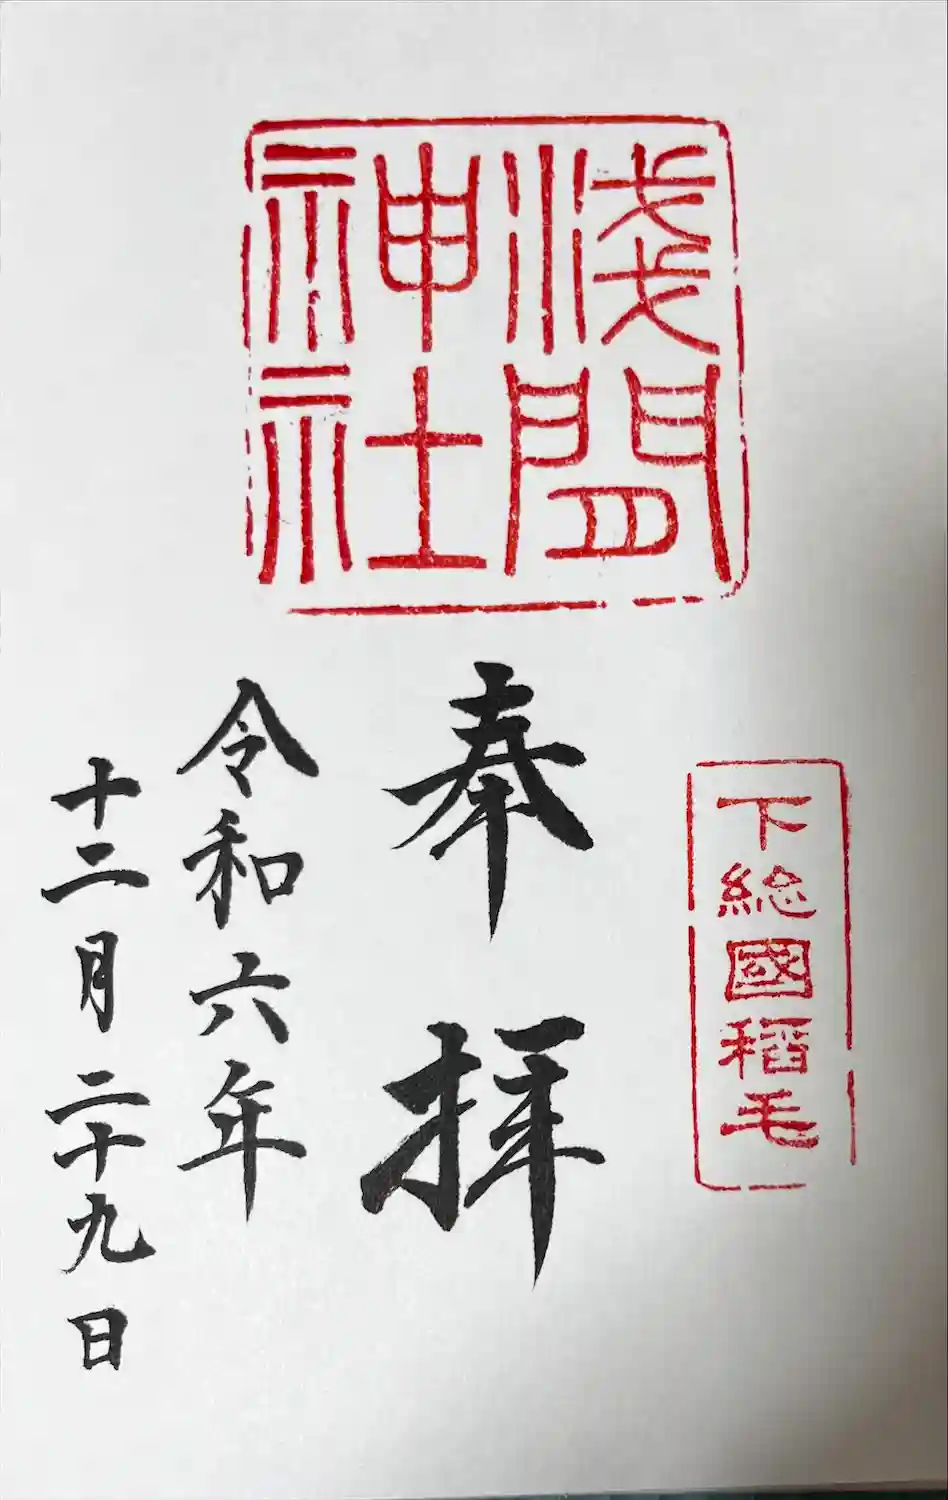 淺間
神社
下総國稲毛
奉拝
令和六年
十二月二十九日